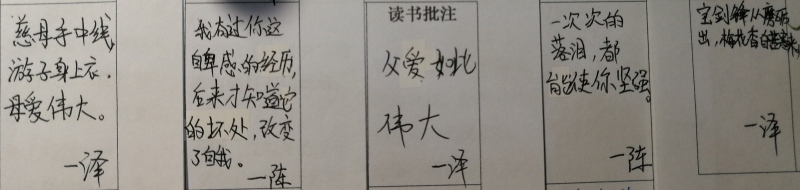 慈母手中线,
游子身上衣.
母爱伟大。
一泽
我有过你这
自卑感的经历,
后来才知道它
的坏处,改变
了自我。
一陈
读书批注
父爱如此
伟大
一泽
一次次的
落泪,都
能使你坚强。
一陈
宝剑锋从磨砺
出,梅花香自苦寒来
一泽